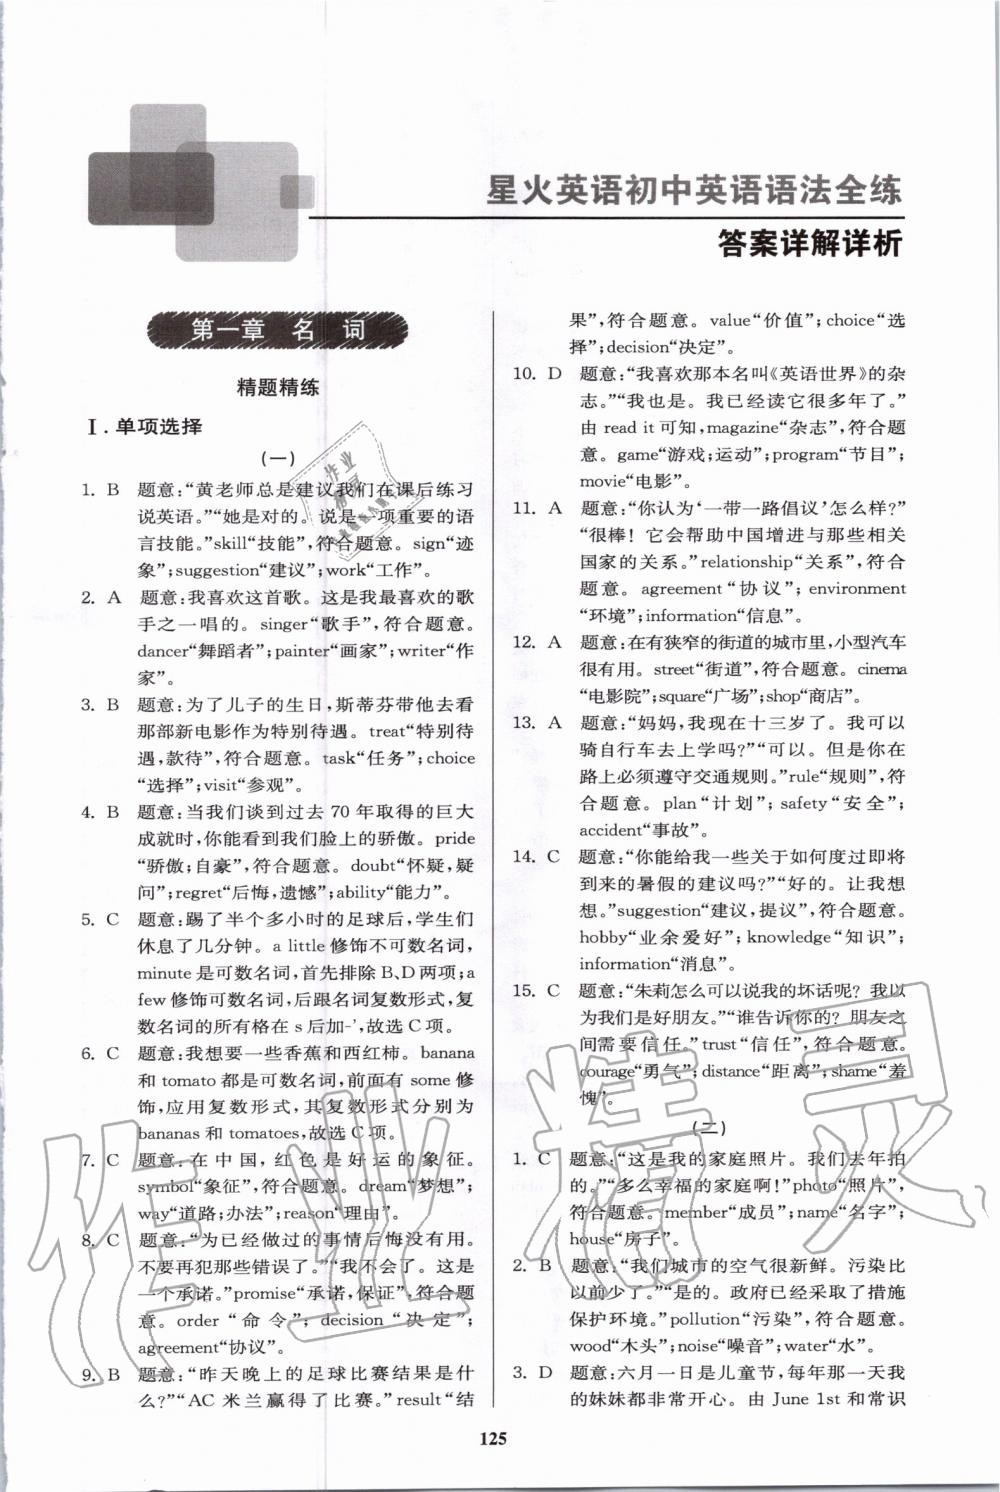 星火英语初中英语语法全练
答案详解详析
第一章 名 词
精题精练
Ⅰ.单项选择
(一)
1. B 题意:“黄老师总是建议我们在课后练习
说英语。”“她是对的。说是一项重要的语
言技能。”skill“技能”,符合题意。sign“迹
象”;suggestion“建议”;work“工作”。
2. A 题意:我喜欢这首歌。这是我最喜欢的歌
手之一唱的。singer“歌手”,符合题意。
dancer“舞蹈者”;painter“画家”;writer“作
家”。
3. B 题意:为了儿子的生日,斯蒂芬带他去看
那部新电影作为特别待遇。treat“特别待
遇,款待”,符合题意。task“任务”;choice
“选择”;visit“参观”。
4. B 题意:当我们谈到过去 70 年取得的巨大
成就时,你能看到我们脸上的骄傲。pride
“骄傲;自豪”,符合题意。doubt“怀疑,疑
问”;regret“后悔,遗憾”;ability“能力”。
5. C 题意:踢了半个多小时的足球后,学生们
休息了几分钟。a little 修饰不可数名词,
minute 是可数名词,首先排除 B、D 两项;a
few 修饰可数名词,后跟名词复数形式,复
数名词的所有格在 s 后加-',故选 C 项。
6. C 题意:我想要一些香蕉和西红柿。banana
和 tomato 都是可数名词,前面有 some 修
饰,应用复数形式,其复数形式分别为
bananas 和 tomatoes,故选 C 项。
7. C 题意:在中国,红色是好运的象征。
symbol“象征”,符合题意。dream“梦想”;
way“道路;办法”;reason“理由”。
8. C 题意:“为已经做过的事情后悔没有用。
不要再犯那些错误了。”“我不会了。这是
一个承诺。”promise“承诺,保证”,符合题
意。order“命令”;decision“决定”;
agreement“协议”。
9. B 题意:“昨天晚上的足球比赛结果是什
么?”“AC 米兰赢得了比赛。”result“结
果”,符合题意。value“价值”;choice“选
择”;decision“决定”。
10. D 题意:“我喜欢那本名叫《英语世界》的杂
志。”“我也是。我已经读它很多年了。”
由 read it 可知,magazine“杂志”,符合题
意。game“游戏;运动”;program“节目”;
movie“电影”。
11. A 题意:“你认为‘一带一路倡议’怎么样?”
“很棒!它会帮助中国增进与那些相关
国家的关系。”relationship“关系”,符合
题意。agreement“协议”;environment
“环境”;information“信息”。
12. A 题意:在有狭窄的街道的城市里,小型汽车
很有用。street“街道”,符合题意。cinema
“电影院”;square“广场”;shop“商店”。
13. A 题意:“妈妈,我现在十三岁了。我可以
骑自行车去上学吗?”“可以。但是你在
路上必须遵守交通规则。”rule“规则”,符
合题意。plan“计划”;safety“安全”;
accident“事故”。
14. C 题意:“你能给我一些关于如何度过即将
到来的暑假的建议吗?”“好的。让我想
想。”suggestion“建议,提议”,符合题意。
hobby“业余爱好”;knowledge“知识”;
information“消息”。
15. C 题意:“朱莉怎么可以说我的坏话呢?我以
为我们是好朋友。”“谁告诉你的?朋友之
间需要信任。”trust“信任”,符合题意。
courage“勇气”;distance“距离”;shame“羞
愧”。
(二)
1. C 题意:“这是我的家庭照片。我们去年拍
的。”“多么幸福的家庭啊!”photo“照片”,
符合题意。member“成员”;name“名字”;
house“房子”。
2. B 题意:“我们城市的空气很新鲜。污染比
以前少了。”“是的。政府已经采取了措施
保护环境。”pollution“污染”,符合题意。
wood“木头”;noise“噪音”;water“水”。
3. D 题意:六月一日是儿童节,每年那一天我
的妹妹都非常开心。由 June 1st 和常识
125
作业精灵
作业精灵